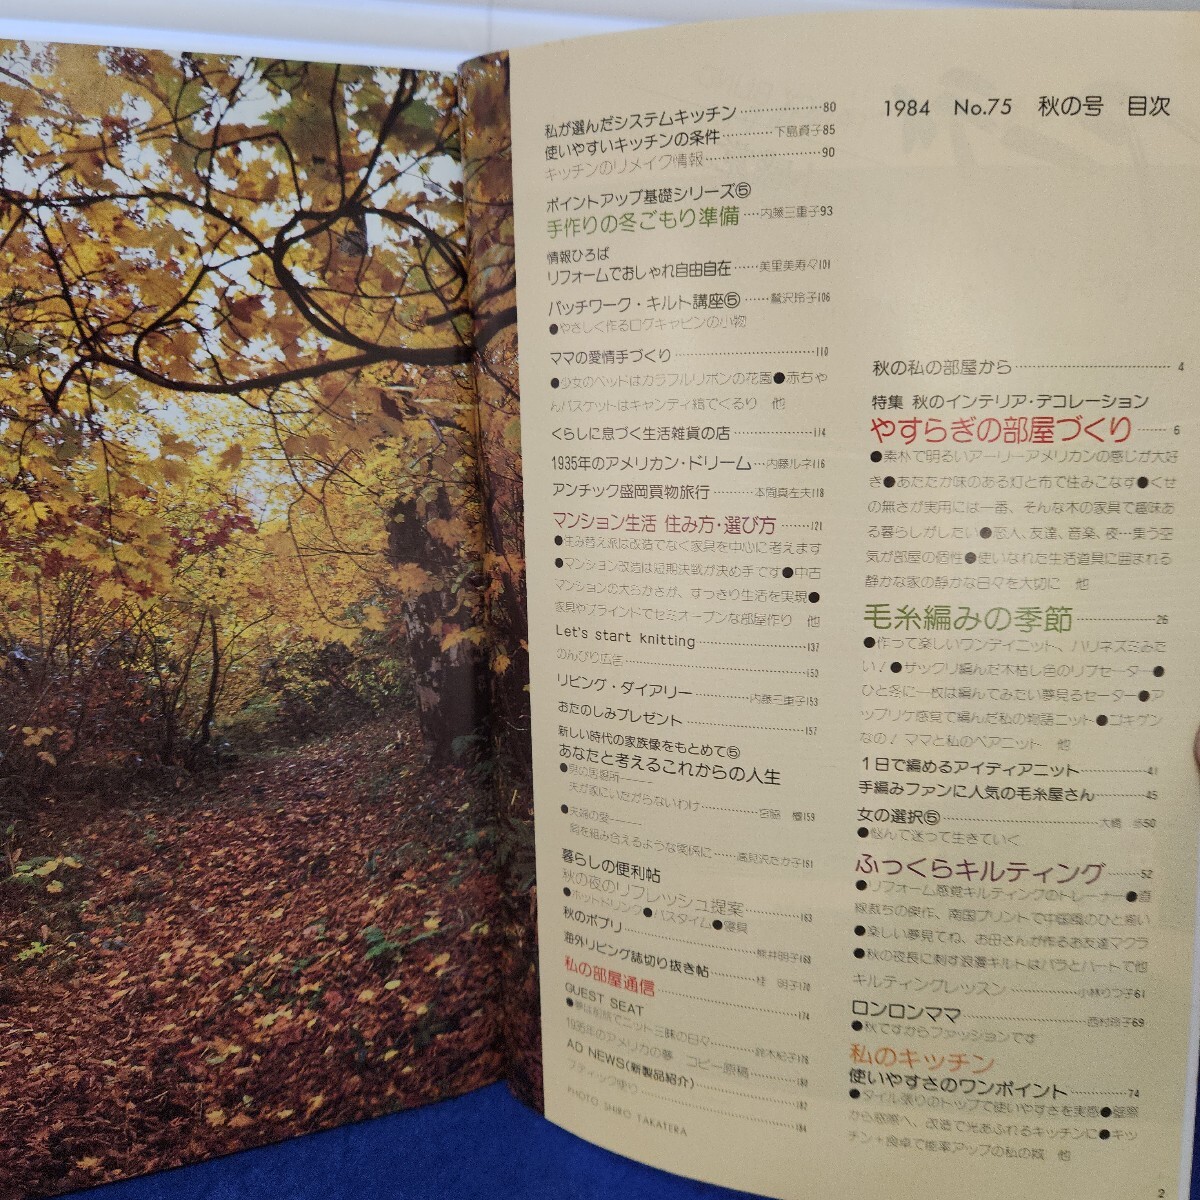 1984 No.75 秋の号 目次
秋の私の部屋から 4
特集 秋のインテリア・デコレーション
やすらぎの部屋づくり 6
●素朴で明るいアーリーアメリカンの感じが大好
き●あたたか味のある灯と布で住みこなす●くせ
の無さが実用には一番、そんな木の家具で趣味あ
る暮らしがしたい●恋人、友達、音楽、夜…集う空
気が部屋の個性●使いなれた生活道具に囲まれる
静かな家の静かな日々を大切に 他
毛糸編みの季節 26
●作って楽しいワンデイニット、ハリネズミみた
い!●ザックリ編んだ木枯し色のリブセーター●
ひと冬に一枚は編んでみたい夢見るセーター●ア
ップリケ感覚で編んだ私の物語ニット●ゴキゲン
なの! ママと私のペアニット 他
1日で編めるアイディアニット 41
手編みファンに人気の毛糸屋さん 45
女の選択⑤ 大橋 歩50
●悩んで迷って生きていく
ふっくらキルティング 52
●リフォーム感覚キルティングのトレーナー●直
線裁ちの傑作、南国プリントで中国風のひと揃い
●楽しい夢見てね、お母さんが作るお友達マクラ
●秋の夜長に刺す浪漫キルトはバラとハートで他
キルティングレッスン 小林りつ子61
ロンロンママ 西村玲子69
●秋ですからファッションです
私のキッチン
使いやすさのワンポイント 74
●タイル張りのトップで使いやすさを実感●壁際
から窓際へ、改造で光あふれるキッチンに●キッ
チン+食卓で能率アップの私の城 他
私が選んだシステムキッチン 80
使いやすいキッチンの条件 下島貞子85
キッチンのリメイク情報 90
ポイントアップ基礎シリーズ⑤
手作りの冬ごもり準備 内藤三重子93
情報ひろば
リフォームでおしゃれ自由自在 美里美寿々101
パッチワーク・キルト講座⑤ 鷲沢玲子106
●やさしく作るログキャビンの小物
ママの愛情手づくり 110
●少女のベッドはカラフルリボンの花園●赤ちゃ
んバスケットはキャンディ箱でくるり 他
くらしに息づく生活雑貨の店 114
1935年のアメリカン・ドリーム 内藤ルネ116
アンチック盛岡買物旅行 本間真左夫118
マンション生活 住み方・選び方 121
●住み替え派は改造でなく家具を中心に考えます
●マンション改造は短期決戦が決め手です●中古
マンションの大らかさが、すっきり生活を実現●
家具やブラインドでセミオープンな部屋作り 他
Let's start knitting 137
のんびり広告 150
リビング・ダイアリー 内藤三重子153
おたのしみプレゼント 157
新しい時代の家族像をもとめて⑤
あなたと考えるこれからの人生
●男の居場所
夫が家にいたがらないわけ 宮脇 檀159
●夫婦の愛
肩を組み合えるような関係に 高見沢たか子161
暮らしの便利帖
秋の夜のリフレッシュ提案
●ホットドリンク●バスタイム●寝具 163
秋のポプリ 熊井明子168
海外リビング誌切り抜き帖 桂 明子170
私の部屋通信 174
GUEST SEAT
●夢は制帽でニット三昧の日々 鈴木紀子178
1935年のアメリカの夢 コピー原稿 180
AD NEWS(新製品紹介) 182
ブティック便り 184
PHOTO SHIRO TAKATERA
2